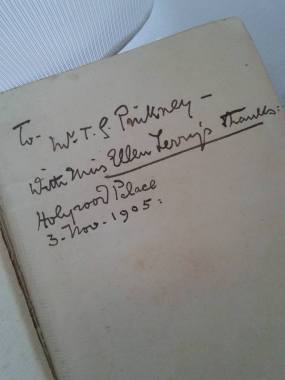 To- Mr. T. S. Pinkney -
With Miss Ellen Terry's Thanks:
Holyrood Palace
3-Nov-1905: